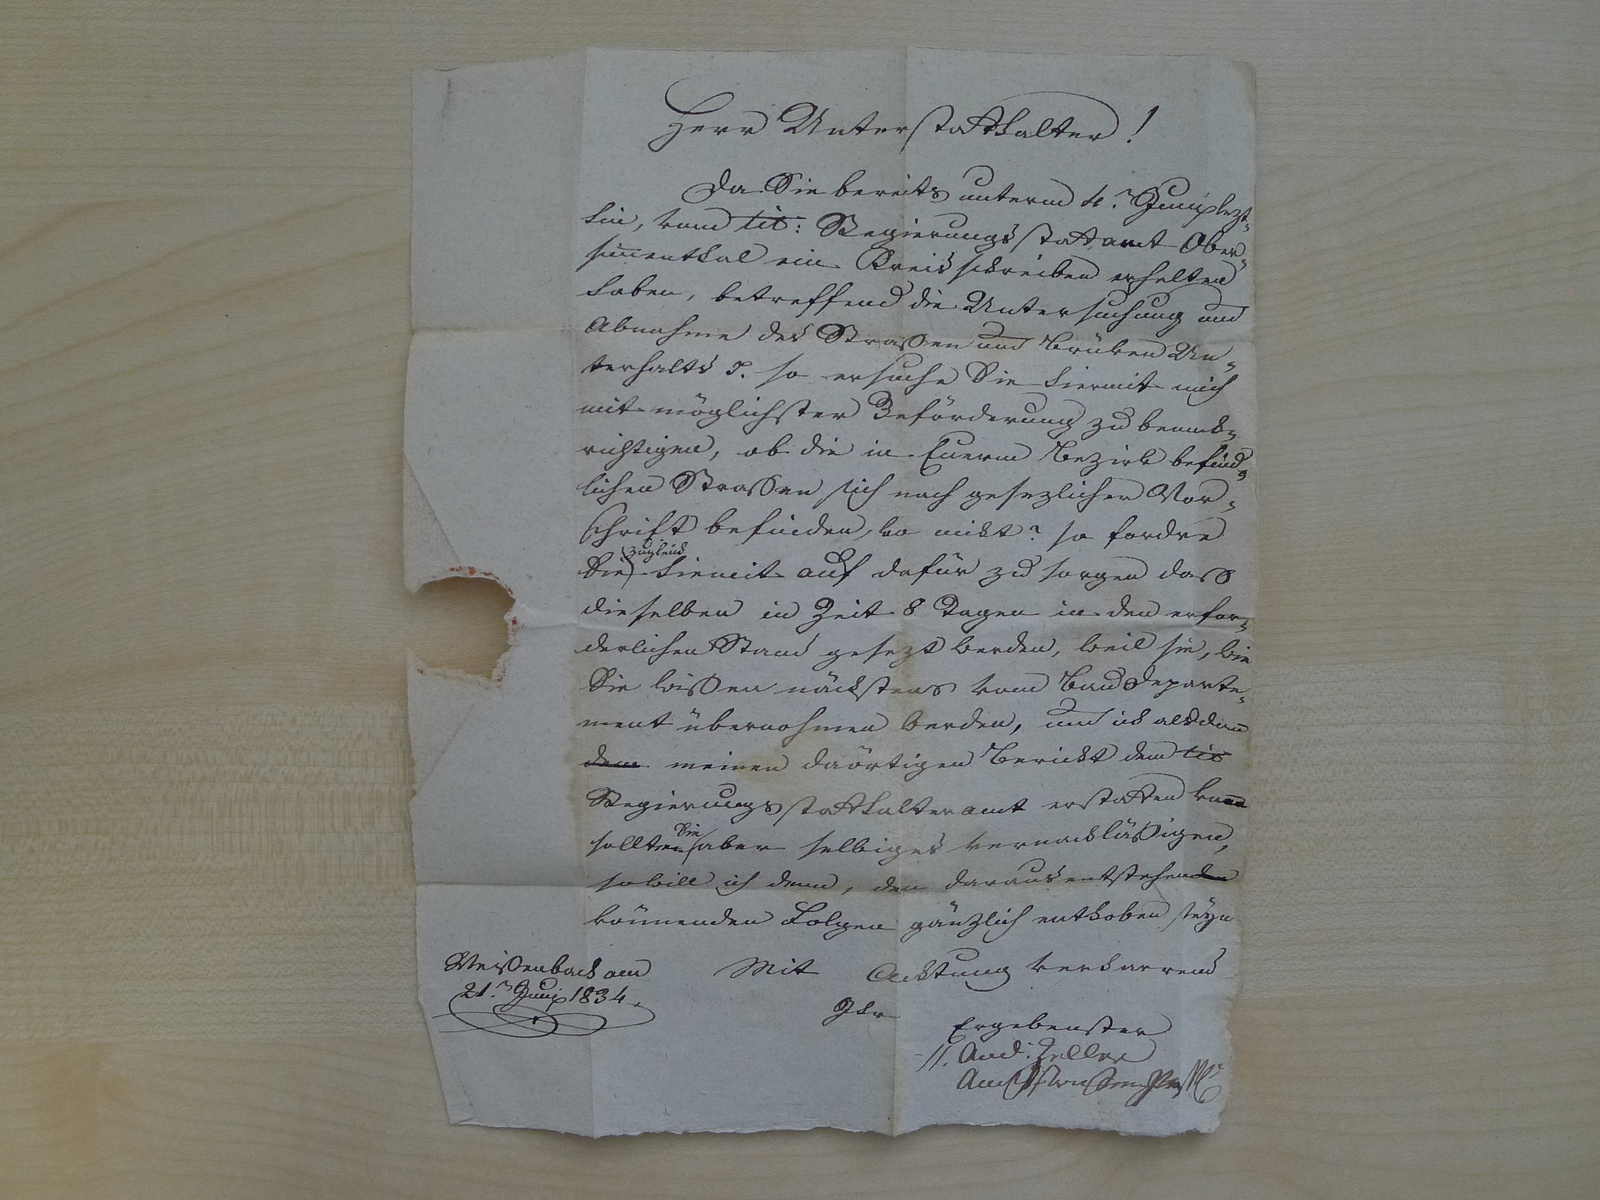 Herr Unterstatthalter!
Da Sie bereits unterm 4.n Junÿ lezt=
hin, vom tit: Regierungsstattamt Ober=
simenthal ein Kreisschreiben erhalten
haben, betreffend die Untersuchung und
Abnahme des Straßen und Brüken Un=
terhalts so ersuche Sie hiermit mich
mit möglichster Beförderung zu benach=
richtigen, ob die in Euerm Bezirk befind=
lichen Straßen sich nach gesezlicher Vor=
schrift befinden, wo nicht? so fordre
zugleich
Sie hiemit auf dafür zu sorgen daß
dieselben in Zeit 8 Tagen in den erfor=
derlichen Stand gesezt werden, weil sie, wie
Sie wißen nächstens vom Baudeparte=
ment übernohmen werden, und ich alsdann
dem meinen daörtigen Bericht dem tit
Regierungsstatthalteramt erstatten kann
Sie
sollten aber selbiges vernachläßigen,
so will ich denn, den daraus entstehenden
könnenden Folgen gänzlich enthoben seÿn
Mit Achtung verharrend
Weißenbach am
21.n Junÿ 1834.
Ihr
Ergebenster
And: Zeller